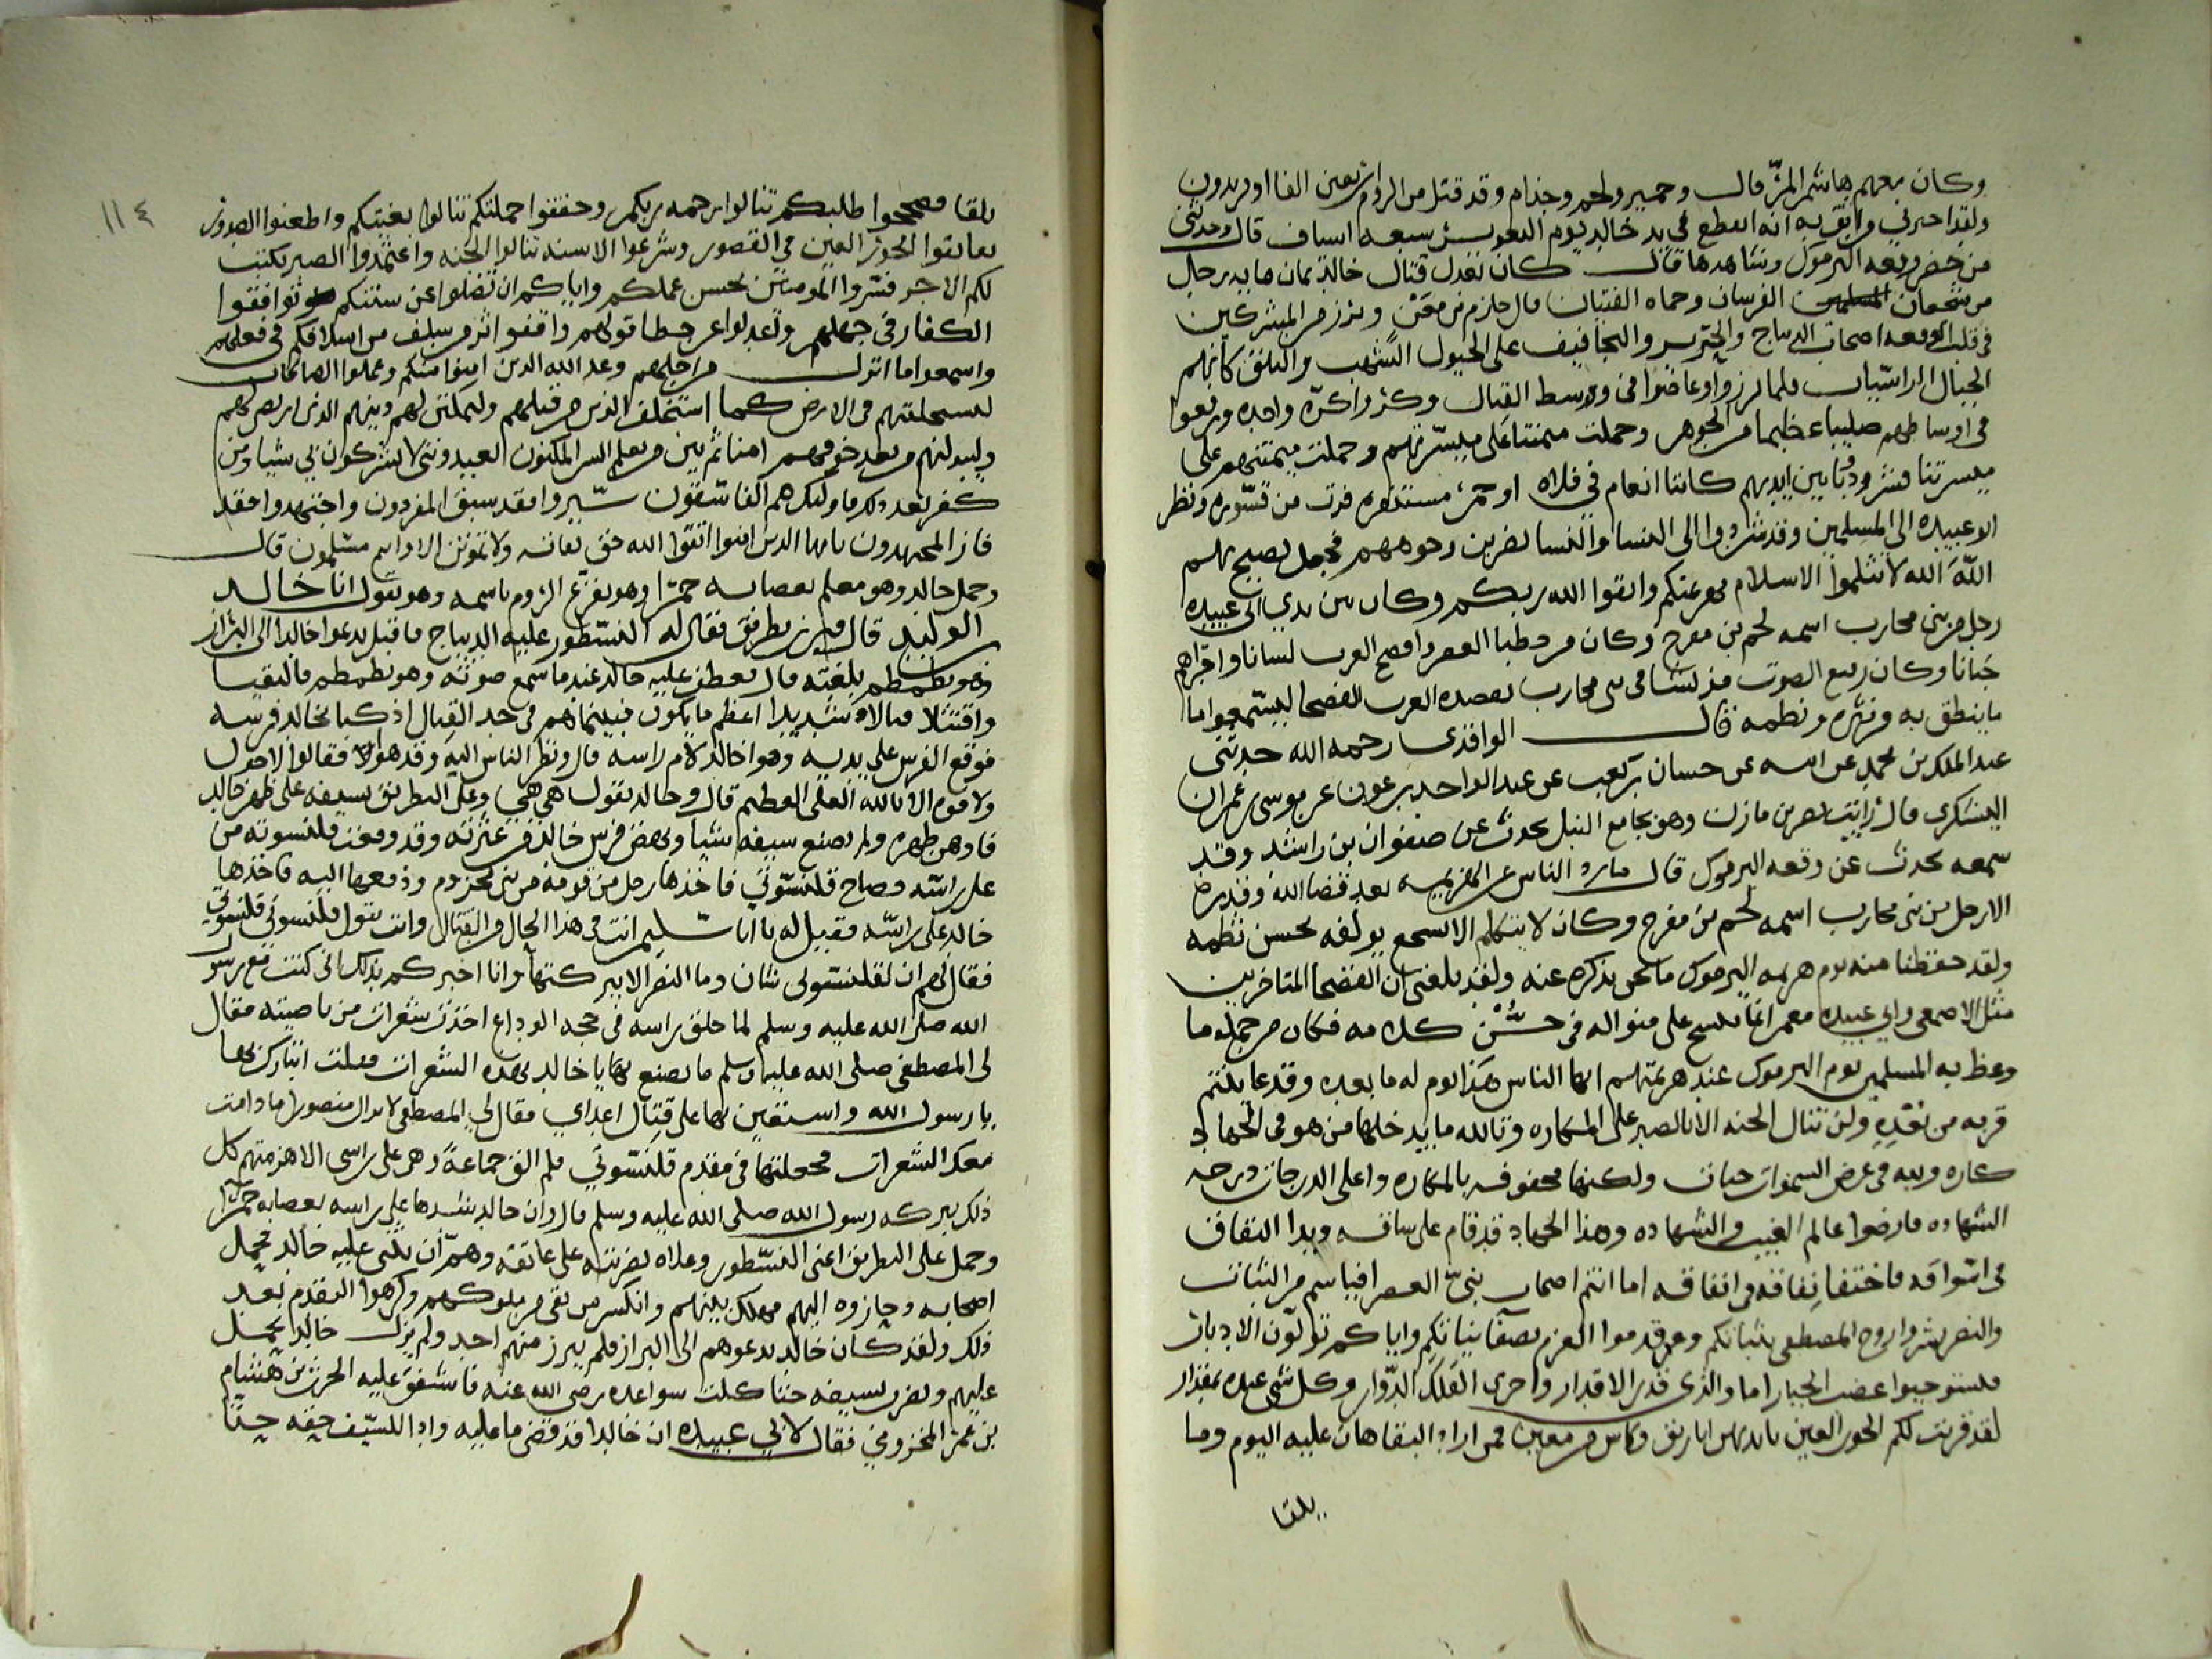 وكان معهم هاشم المرقال وحمير ولخم وجذام وقد قتل من الروم اربعين الفا او يزيدون
ولقد اخبرني من اثق به انه انقطع في يد خالد يوم تسعه اسياف قال وحدثني
من حضر وقعه اليرموك وشاهدها قال كان نعدل قتال خالد بمان مايه رجل
من شجعان المسلمين الفرسان وحماه الفتيان قال حازم بن معن وبرز من المشركين
في تلك الوقعه اصحاب الديباج والحرير والتجافيف على الخيول الشهب والبلق كانهم
الجبال الراسيات فلما برزوا وغاصوا في وسط القتال وكروا كره واحده ورفعوا
في اوساطهم صليبا عظيما من الجوهر وحملت ميمنتنا على ميسرتهم وحملت ميمنتهم على
ميسرتنا فشردونا بين ايديهم كاننا انعام في فلاه او حمر مستنفره فرت من قسوره ونظر
ابو عبيده الى المسلمين وقد شردوا الى النسا والنسا يضربن وجوههم فجعل يصيح بهم
الله الله لا تثلموا الاسلام بهزيمتكم واتقوا الله ربكم وكان بين يدي ابي عبيده
رجل من بني محارب اسمه لخم بن مفرج وكان من خطبا العصر وافصح العرب لسانا واجراهم
جنانا وكان رفيع الصوت فذ نشا في بني محارب يقصده العرب الفصحا ليستمعوا ما
ما ينطق به من نثره ونظمه قال الواقدي رحمه الله حدثني
عبد الملك بن محمد عن ابيه عن حسان بن كعب عن عبد الواحد بن عون عن موسى بن عمران
اليشكري قال رايت نصر بن مازن وهو بجامع النيل يحدث عن صفوان بن راشد وقد
سمعه يحدث عن وقعه اليرموك قال ما رد الناس عن الهزيمه بعد قضا الله وقدره
الا رجل من بني محارب اسمه لخم بن مفرج وكان لا يتكلم الا بسجع يولفه بحسن نظمه
ولقد حفظنا منه يوم هزيمه اليرموك ما نحن نذكره عنه ولقد بلغني ان الفصحا المتاخرين
مثل الاصمعي وابي عبيده معمر انما نسج على منواله في حسن كلامه فكان من جمله ما
وعظ به المسلمين يوم اليرموك عند هزيمتهم ايها الناس هذا يوم له ما بعده وقد عاينتم
قربه من بعده ولن تنال الجنه الا بالصبر على المكاره وتالله ما يدخلها من هو في الجهاد
كاره ولله في عرض السموات جنات ولكنها محفوفه بالمكاره واعلى الدرجات درجه
الشهاده فارضوا عالم الغيب والشهاده وهذا الجهاد قد قام على ساقه وبدا النفاق
في اسواقه فاختفا نفاقه في انفاقه اما انتم اصحاب نبي العصر افياسم من الثبات
والنصر بشروا روح المصطفى بثباتكم وقدموا العزم بصفا نياتكم واياكم تولون الادبار
فتستوجبوا غضب الجبار اما والذي قدر الاقدار واجرى الفلك الدوار وكل شي عنده بمقدار
لقد قربت لكم الحور العين بايديهن اباريق وكاس من معين فمن اراد البقا هان عليه اليوم وما
يلقا
١١٤
يلقا فصححوا طلبكم تنالوا رحمه ربكم وحققوا حملتكم تنالوا بغيتكم واطعنوا الصدور
تعانقوا الحور العين في القصور وشرعوا الاسنه تنالوا الجنه واعتمدوا الصبر يكتب
لكم الاجر فسروا المومنين بحسن عملكم واياكم ان تضلوا عن سننكم توافقوا
الكفار في جهلهم وتعدلوا عن خطا قولهم واقفوا اثر من سلف من اسلافكم في فعلهم
واسمعوا ما انزل من اجلهم وعد الله الذين امنوا منكم وعملوا الصالحات
ليستخلفنهم في الارض كما استخلف الذين من قبلهم وليمكنن لهم دينهم الذي ارتضى لهم
وليبدلنهم من بعد خوفهم امنا ثم بين من يعلم السر المكنون يعبدونني لا يشركون بي شيا ومن
كفر بعد ذلك فاوليك هم الفاسقون سيروا فقد سبق المفردون واجتهدوا فقد
فاز المجتهدون يا ايها الذين امنوا اتقوا الله حق تقاته ولا تموتن الا وانتم مسلمون قال
وحمل خالد وهو معلم بعصابه حمرا وهو يفزع الروم باسمه وهو يقول انا خالد
ابن الوليد قال فبرز بطريق فقال له النسطور عليه الديباج فاقبل يدعوا خالدا الى البراز
وهو يطمطم بلغته قال فعطف عليه خالد عندما سمع صوته وهو يطمطم فالتقيا
واقتتلا قتالا شديدا اعظم ما يكون فبينما هم في جد القتال اذ كبا بخالد فرسه
فوقع الفرس على يديه وهوا خالد لام راسه قال ونظر الناس اليه وقد هوا فقالوا لا حول
ولا قوه الا بالله العلي العظيم قال وخالد يقول هي هي وعلى البطريق بسيفه على ظهر خالد
فاوهن ظهره ولم يصنع سيفه شيا ونهض فرس خالد من عثرته وقد وقعت قلنسوته من
على راسه فصاح قلنسوتي فاخذها رجل من قومه من بني مخزوم ودفعها اليه فاخذها
خالد على راسه فقيل له يا ابا سليمن انت في هذا الحال من القتال وانت تقول قلنسوتي قلنسوتي
فقال لهم ان لقلنسوتي شان وما النصر الا ببركتها وانا اخبركم بذلك اني كنت مع رسول
الله صلى الله عليه وسلم لما حلق راسه في حجه الوداع اخذت شعرات من ناصيته فقال
لي المصطفى صلى الله عليه وسلم ما تصنع بها يا خالد بهذه الشعرات فقلت اتبارك بها
يا رسول الله واستعين بها على قتال اعداي فقال لي المصطفى لا تزال منصورا ما دامت
معك الشعرات فجعلتها في مقدم قلنسوتي فلم الق جماعة وهي على راسي الا هزمتهم كل
ذلك ببركه رسول الله صلى الله عليه وسلم قال وان خالد شدها على راسه بعصابه حمرا
وحمل على البطريق اعني النسطور وعلاه بضربته على عاتقه وهم ان يثني عليه خالد فحمل
اصحابه وحازوه اليهم فهلك بينهم وانكسر من بقي من ملوكهم وكرهوا التقدم بعد
ذلك ولقد كان خالد يدعوهم الى البراز فلم يبرز منهم احد ولم يزل خالد يحمل
عليهم ويضرب بسيفه حتا كلت سواعده رضي الله عنه فاشفق عليه الحرث بن هشام
بن عمرو المخزومي فقال لابي عبيده ان خالدا قد قضى ما عليه وادا للسيف حقه حتا